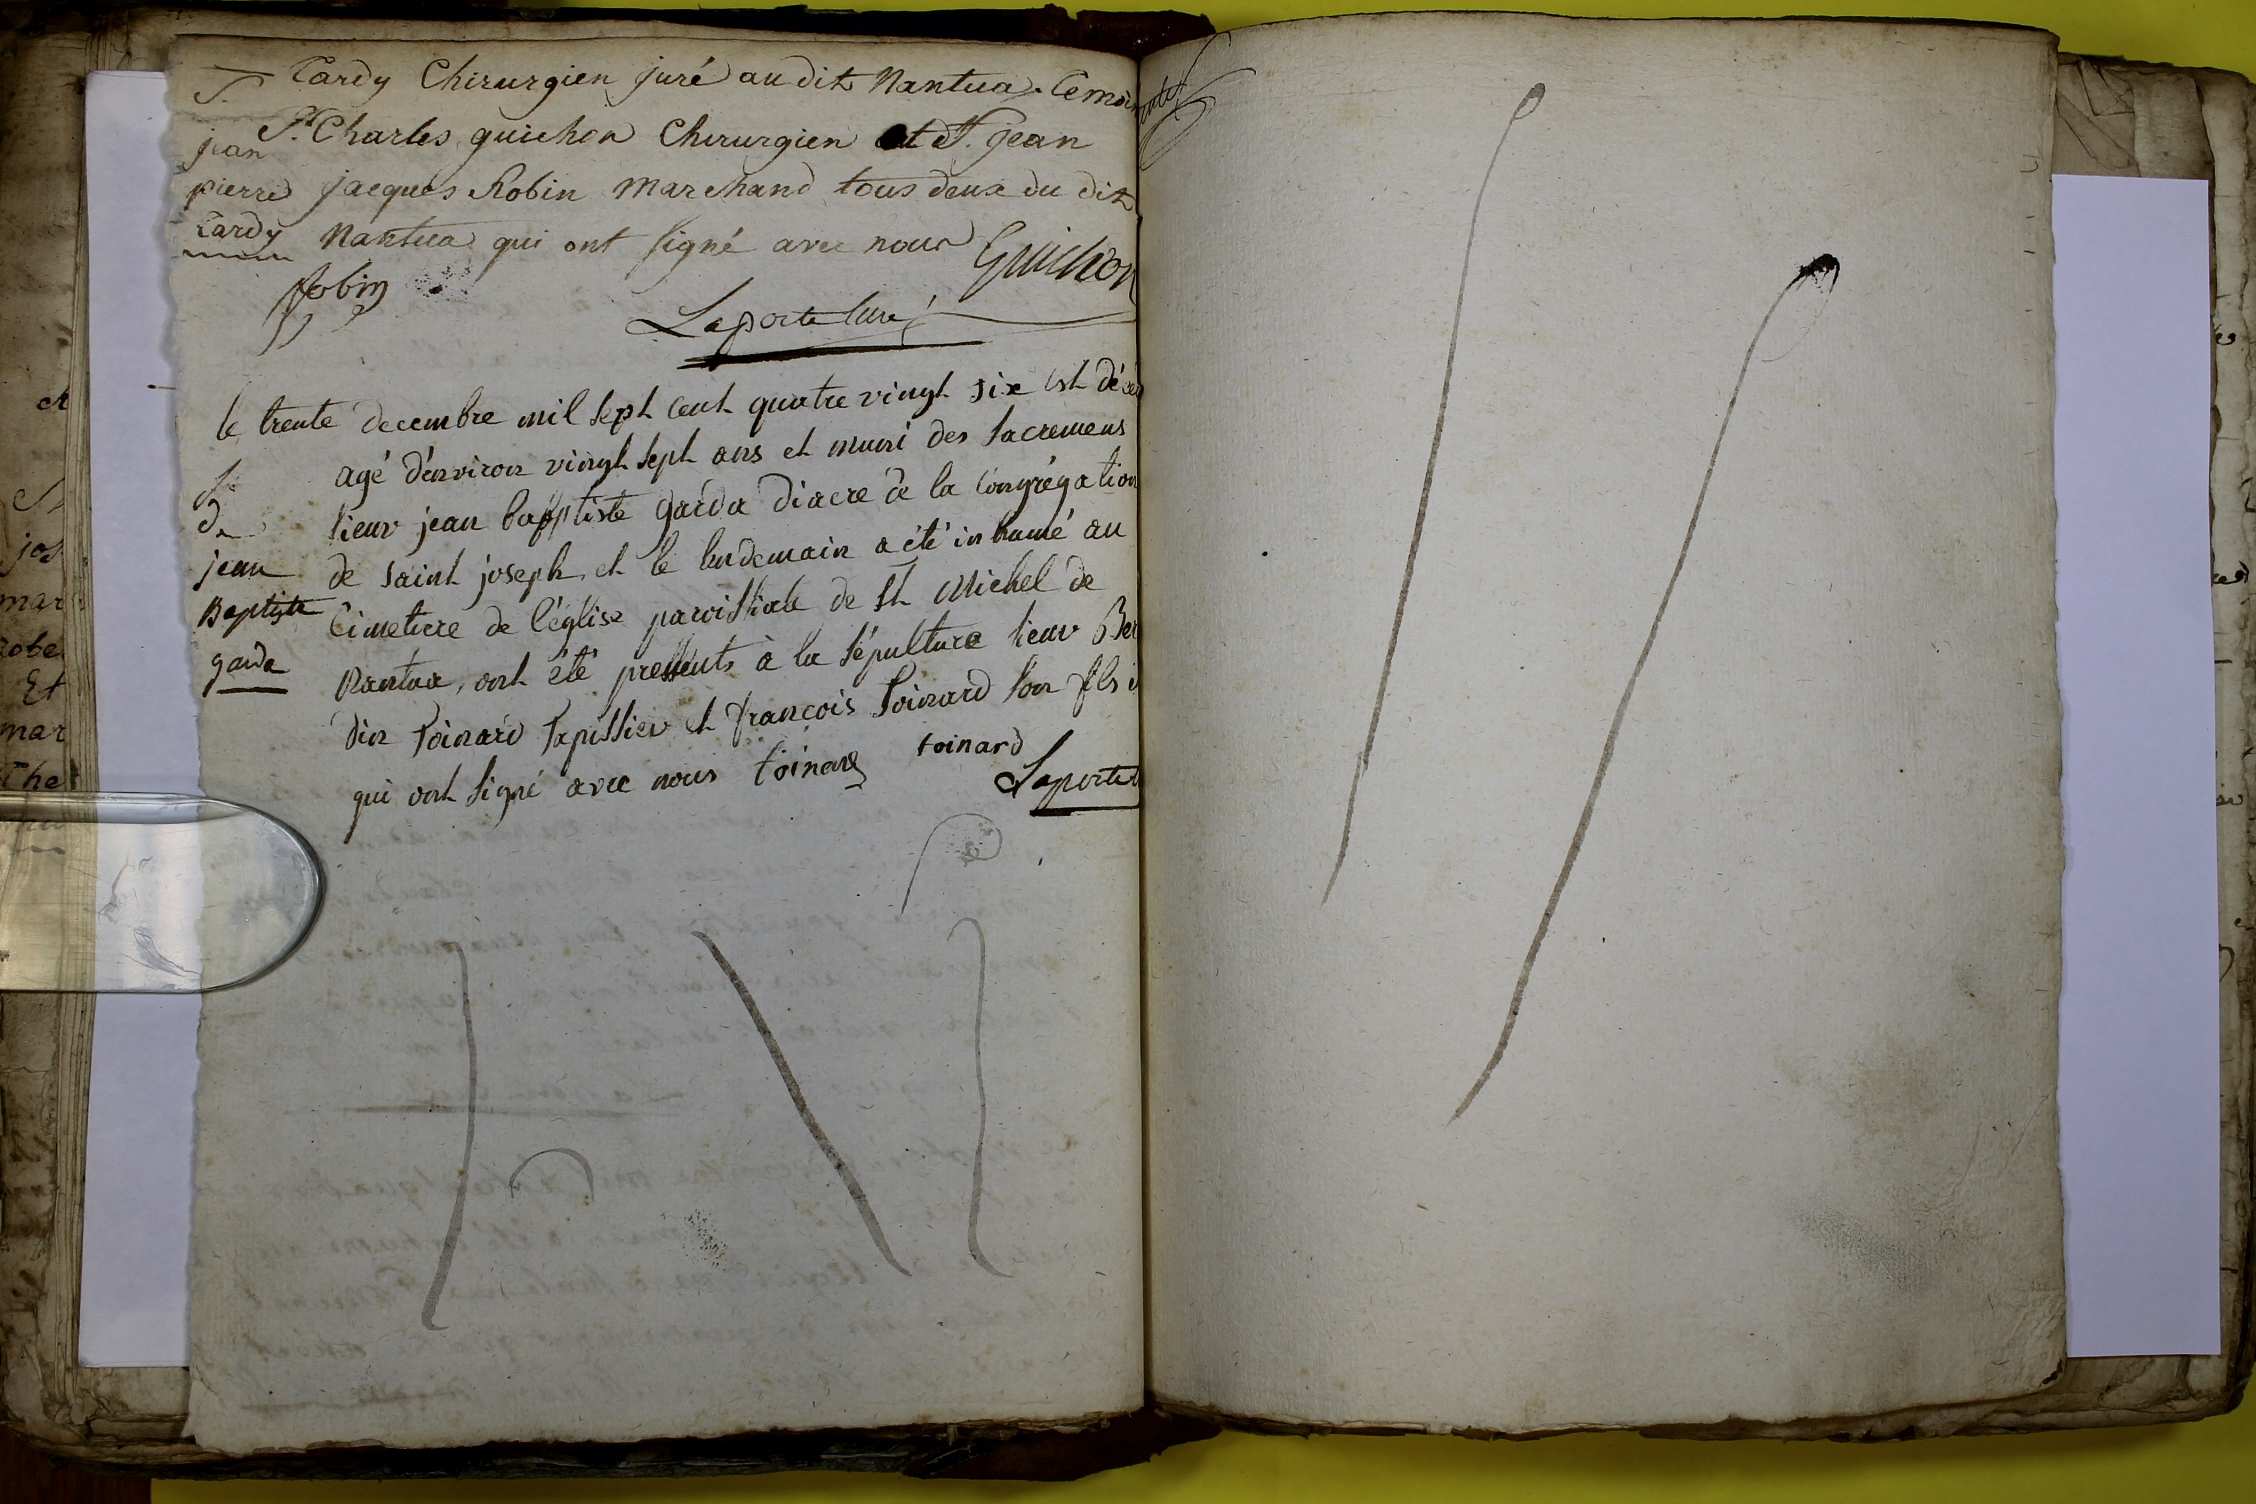 S.
jean
pierre
Tardy
Tardy Chirurgien juré audit Nantua. Temoin
Sr. Charles guichon Chirurgien et Sr. jean
jacques Robin Marchand tous deux du dit
Nantua qui ont signé avec nous Guichon
Robin
Laporte Curé
le trente decembre mil sept cent quatre vingt six est décéd
agé d'environ vingt sept ans et muni des sacremens
sieur jean baptiste garda diacre de la Congrégation
de saint joseph, et le lendemain a été inhumé au
Cimetiere de l'église paroissiale de St Michel de
Nantua, ont été pressents à la sépulture sieur Ber
din toinard tapissier et françois toinard son fils
qui ont signé avec nous toinard toinard
Laporte
Sr
De
jean
Baptiste
garda